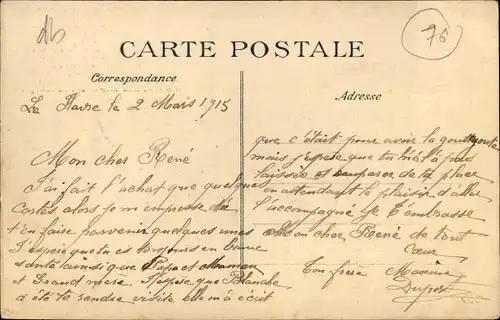 76
CARTE POSTALE
Correspondance
Adresse
Le Havre le 2 Mars 1915
Mon cher René
J'ai fait l'achat que quelques
cartes alors je m'empresse de
t'en faire parvenir quelques unes
J'espère que tu es toujours en bonne
santé ainsi que Papa et Maman
et Grand mère. J'espère que Blanche
a été te rendre visite elle m'a écrit
que c'était pour avoir la goutte
mais j'espère que tu n'ai pas
laissée et de ta place
en attendant le plaisir d'aller
l'accompagné je t'embrasse
Mon cher René de tout
Cœur
Ton frère Maxime